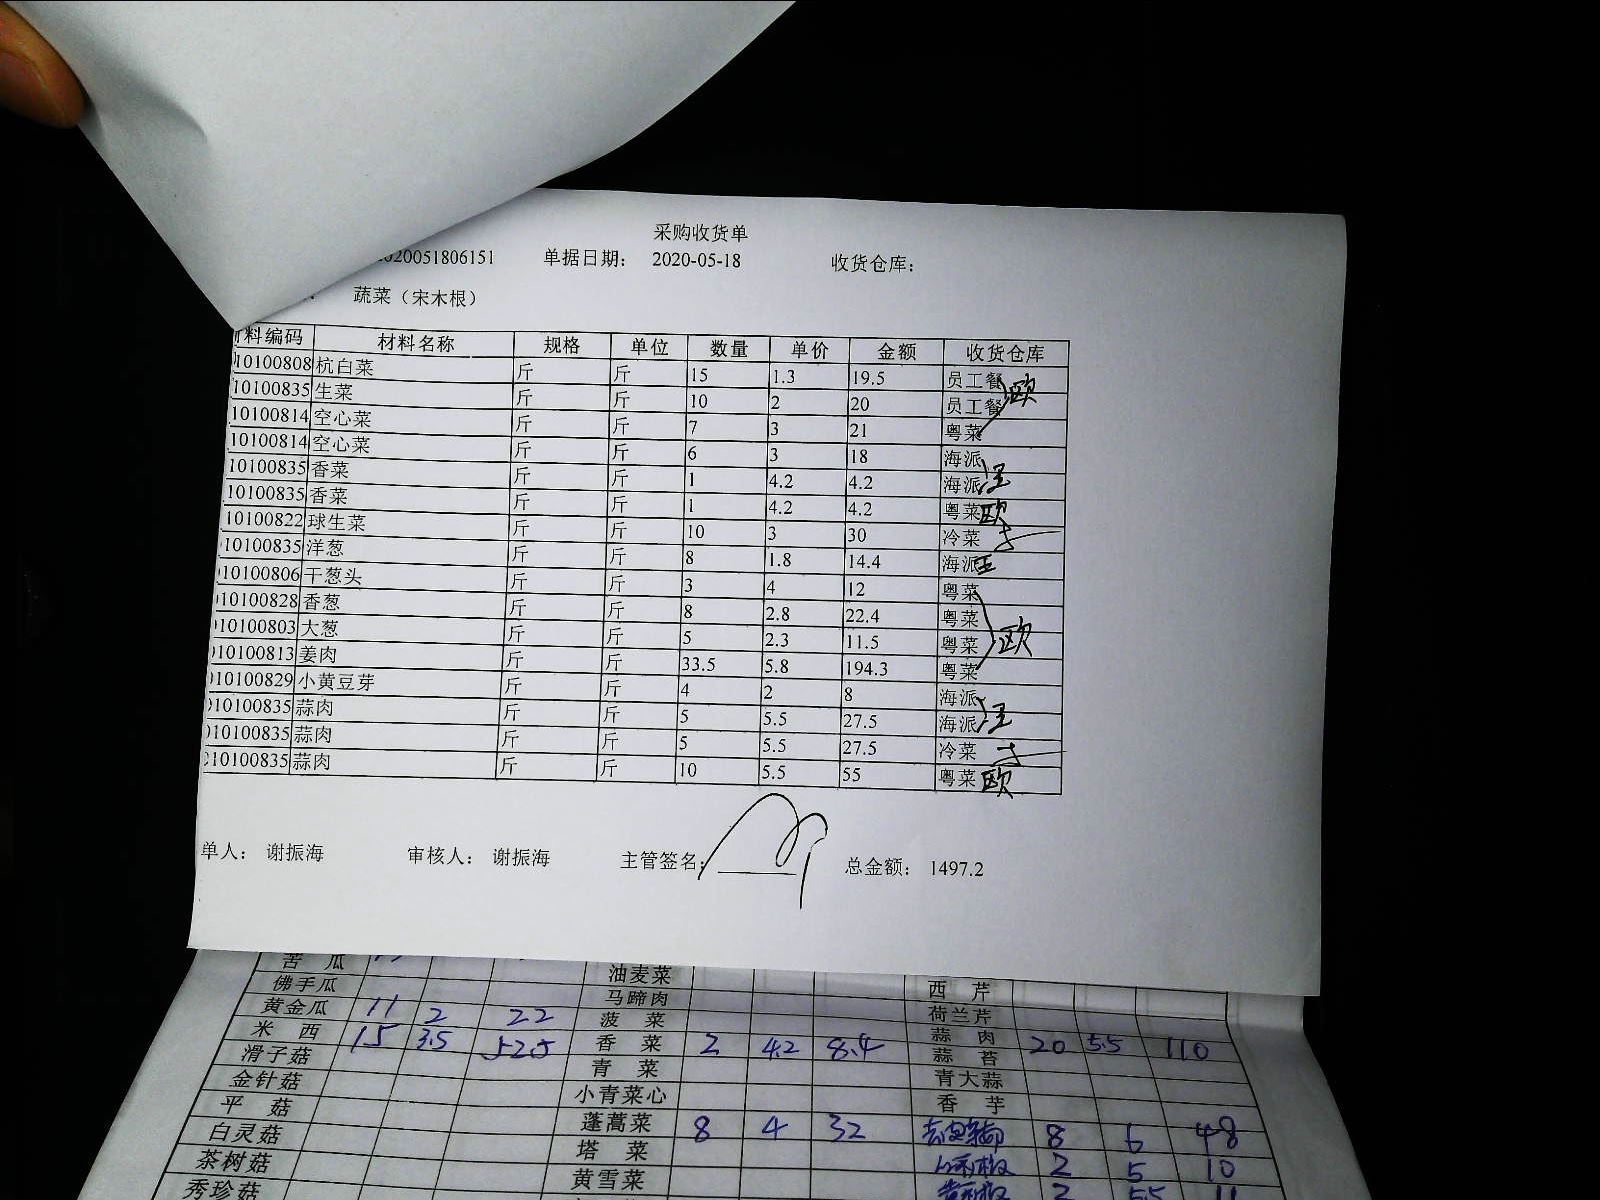 采购收货单
020051806151 单据日期： 2020-05-18 收货仓库：
蔬菜（宋木根）
料编码 材料名称 规格 单位 数量 单价 金额 收货仓库
10100808 杭白菜 斤 斤 15 1.3 19.5 员工餐 欧
10100835 生菜 斤 斤 10 2 20 员工餐
10100814 空心菜 斤 斤 7 3 21 粤菜
10100814 空心菜 斤 斤 6 3 18 海派
10100835 香菜 斤 斤 1 4.2 4.2 海派
10100835 香菜 斤 斤 1 4.2 4.2 粤菜 欧
10100822 球生菜 斤 斤 10 3 30 冷菜
10100835 洋葱 斤 斤 8 1.8 14.4 海派
10100806 干葱头 斤 斤 3 4 12 粤菜
10100828 香葱 斤 斤 8 2.8 22.4 粤菜
10100803 大葱 斤 斤 5 2.3 11.5 粤菜 欧
10100813 姜肉 斤 斤 33.5 5.8 194.3 粤菜
10100829 小黄豆芽 斤 斤 4 2 8 海派
10100835 蒜肉 斤 斤 5 5.5 27.5 海派
010100835 蒜肉 斤 斤 5 5.5 27.5 冷菜
10100835 蒜肉 斤 斤 10 5.5 55 粤菜 欧
单人： 谢振海 审核人： 谢振海 主管签名： 总金额： 1497.2
苦瓜 油麦菜 西芹
佛手瓜 马蹄肉 荷兰芹
黄金瓜 11 2 22 菠菜 蒜肉 20 5.5 110
米西 15 3.5 52.5 香菜 2 4.2 8.4 蒜苔
滑子菇 青菜 青大蒜
金针菇 小青菜心 香芋
平菇 蓬蒿菜 8 4 32 8 6 48
白灵菇 塔菜 2 5 10
茶树菇 黄雪菜 2 5.5 11
秀珍菇